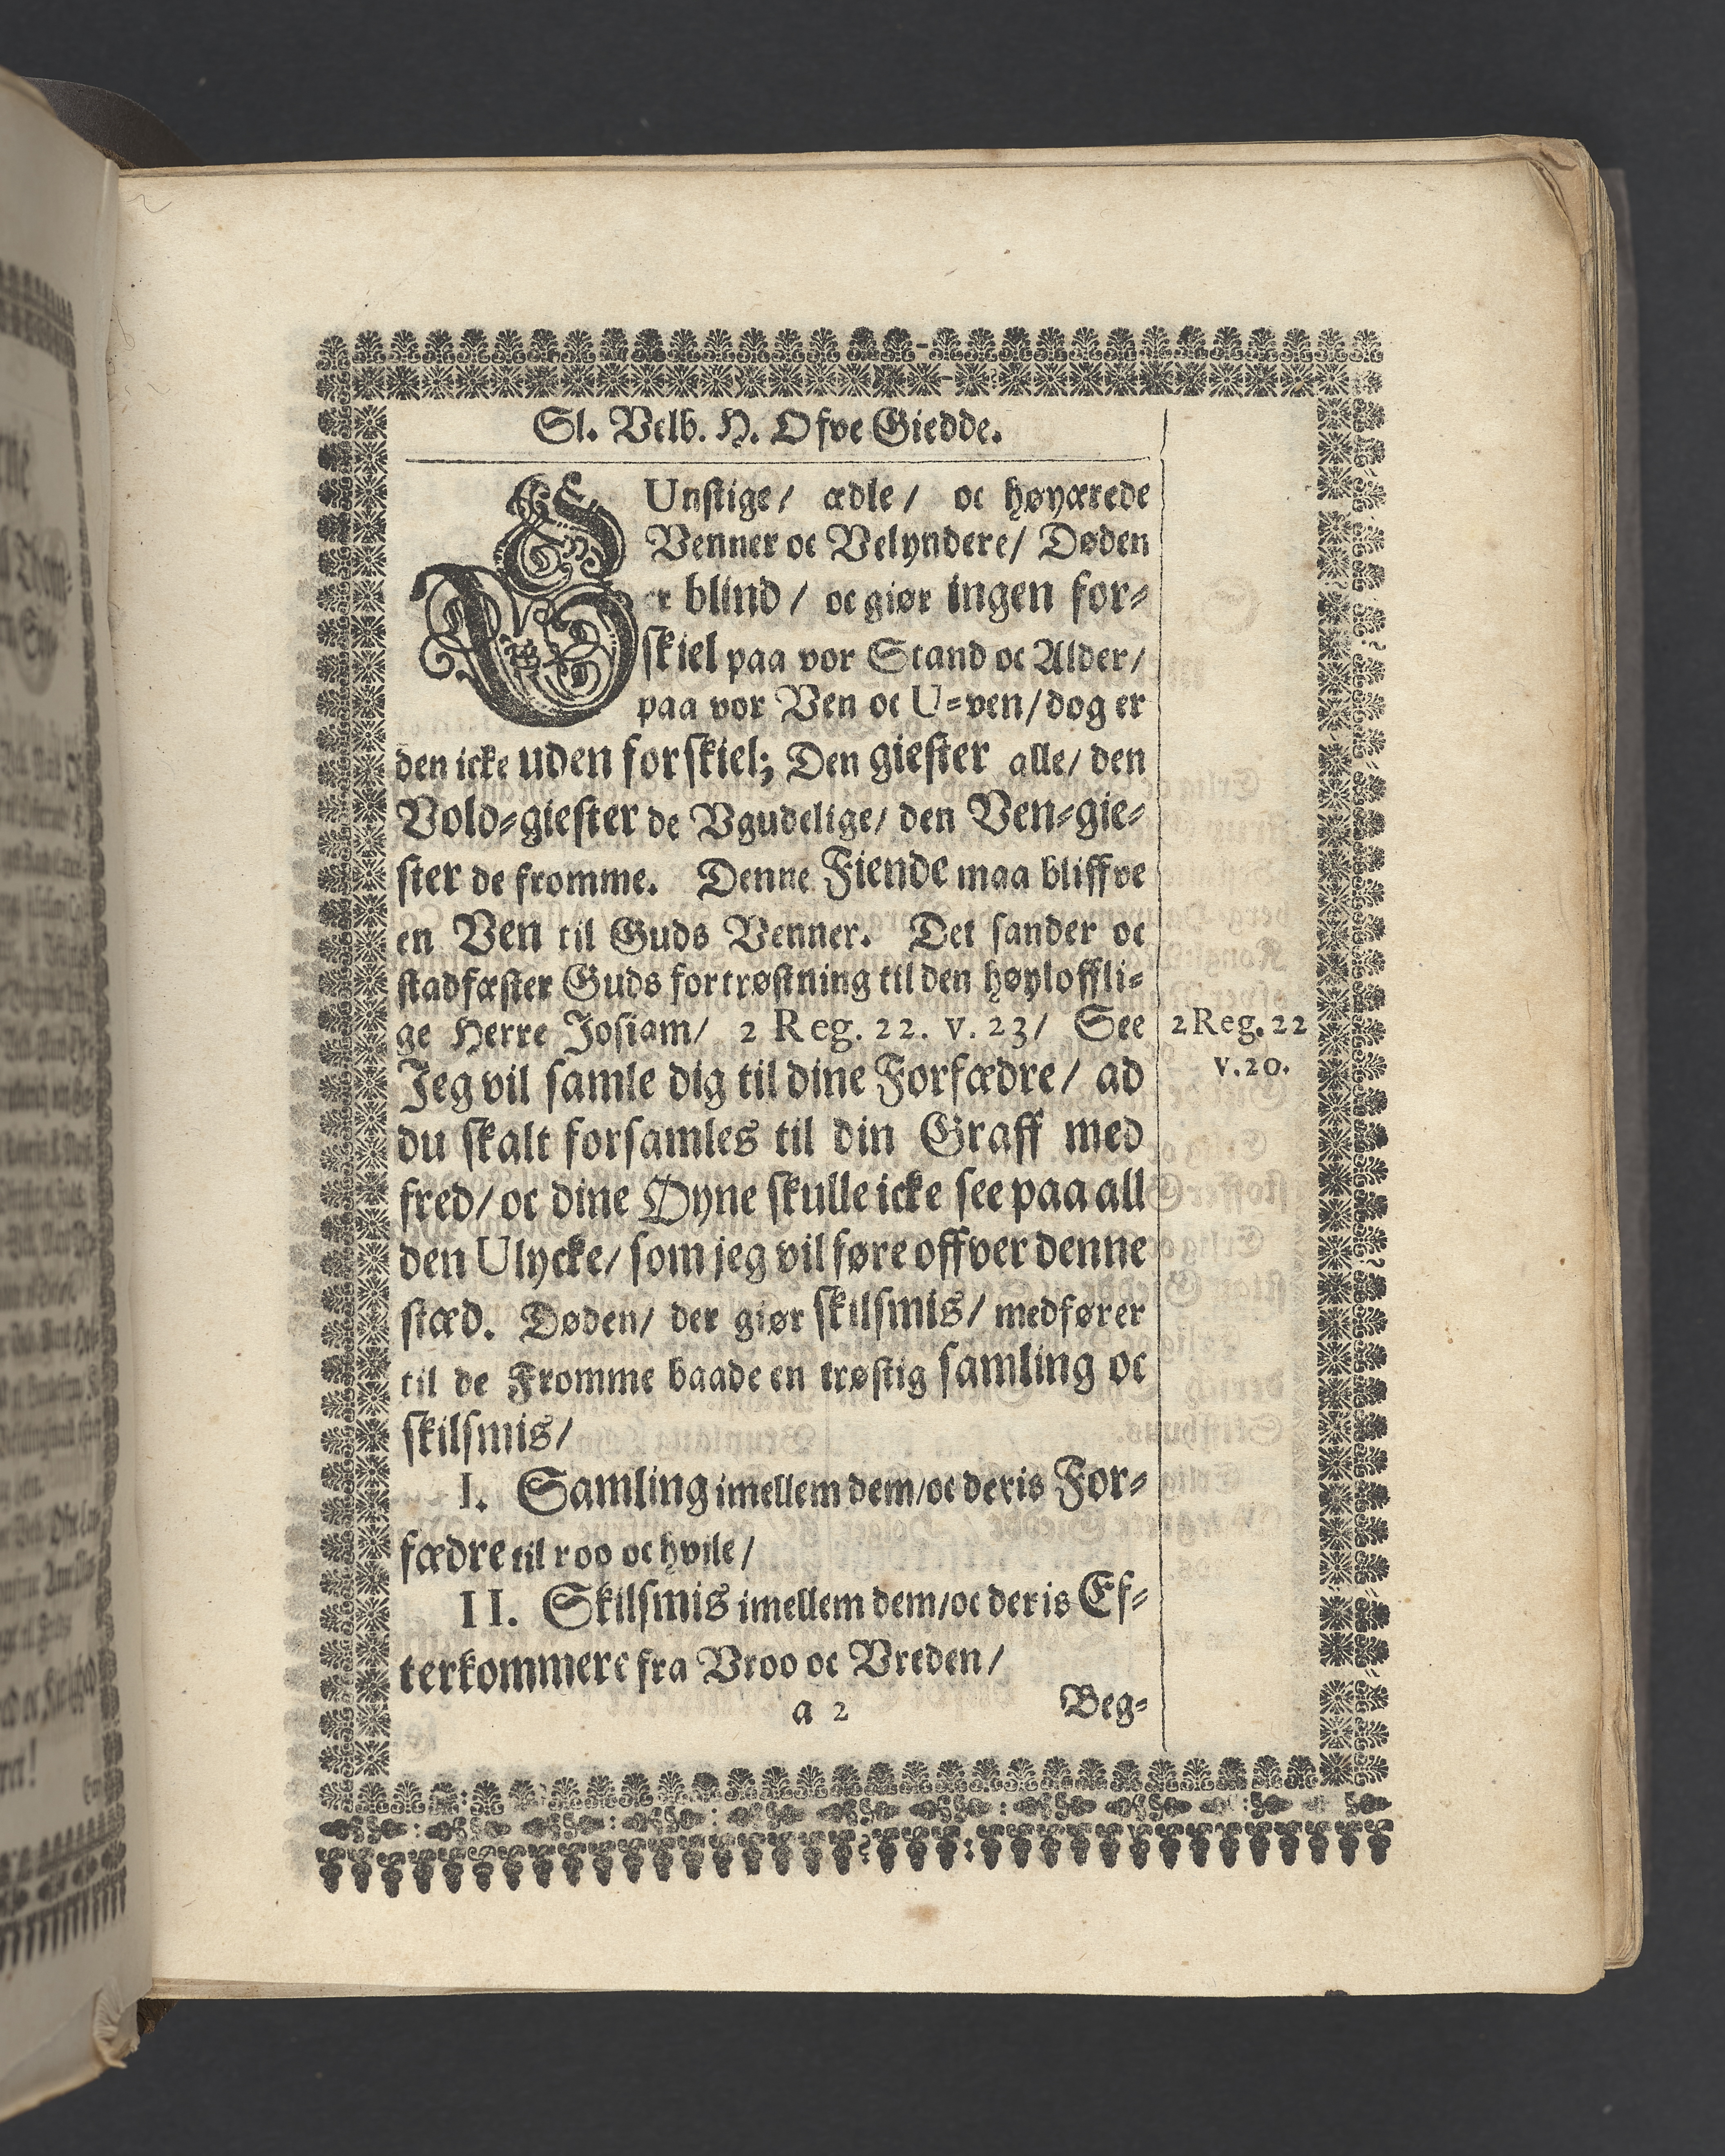 Sl. Velb. H. Ofve Giedde.
GUnstige/ ædle/ oc høyærede
Venner oc Velyndere/ Døden
er blind/ oc giør ingen for-
skiel paa vor Stand oc Alder/
paa vor Ven oc U-ven/ dog er
den icke uden forskiel; Den giester alle/ den
Vold-giester de Vgudelige/ den Ven-gie-
ster de fromme. Denne Fiende maa bliffve
en Ven til Guds Venner. Det sander oc
stadfæster Guds fortrøstning til den høyloffli-
ge Herre Josiam/ 2 Reg. 22. v. 23/ See
2 Reg. 22
v. 20.
Jeg vil samle dig til dine Forfædre/ ad
du skalt forsamles til din Graff med
fred/ oc dine Øyne skulle icke see paa all
den Ulycke/ som jeg vil føre offver denne
stæd. Døden/ der giør skilsmis/ medfører
til de Fromme baade en trøstig samling oc
skilsmis/
I. Samling imellem dem/ oc deris For-
fædre til roo oc hvile/
II. Skilsmis imellem dem/ oc deris Ef-
terkommere fra Vroo oc Vreden/
a 2
Beg-